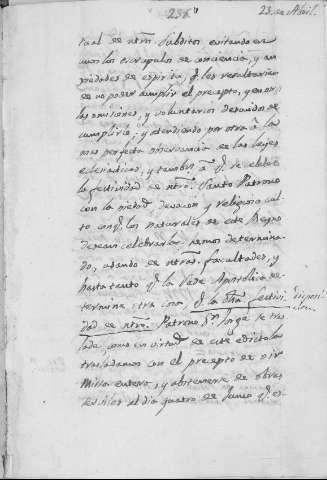 236
23. de Abril.
tual de ntrõs. subditos evitando en
unos los escrupulos de conciencia, y an
siedades de espiritu q̃. les resultarian
de no poder cumplir el precepto, y en otros
las omisiones, y voluntarios descuidos de
cumplirlo; y atendiendo por otra â la
mas perfecta observancia de las leyes
eclesiasticas, y tambien â q̃. se celebre
la festividad de ntrõ. Santo Patrono
con la piedad devocion y religioso cul
to con q̃. los naturales de este Reyno
desean celebrarla: hemos determina
do, usando de ntrãs. facultades, y
hasta tanto q̃. la Sede Apostolica de
termine otra cosa q̃. la dhã. festivi
dad de ntrõ. Patrono Sn. Jorge se tras
lade, como en virtud de este edicto la
trasladamos con el precepto de oir
Missa entero, y abstenerse de obras
serviles al dia quatro de Junio q̃. es
disposi
cion.